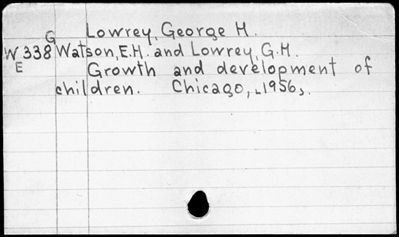 G Lowrey, George H.
W338 Watson, E.H. and Lowrey, G.H.
E Growth and development of
children. Chicago, [1956].